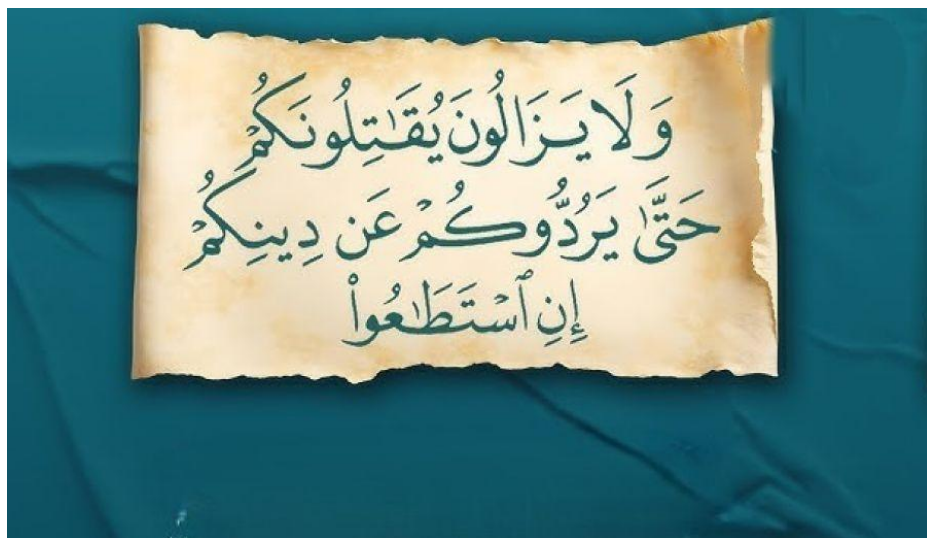 وَلَا يَزَالُونَ يُقَٰتِلُونَكُمْ
حَتَّىٰ يَرُدُّوكُمْ عَن دِينِكُمْ
إِنِ ٱسْتَطَٰعُوا۟